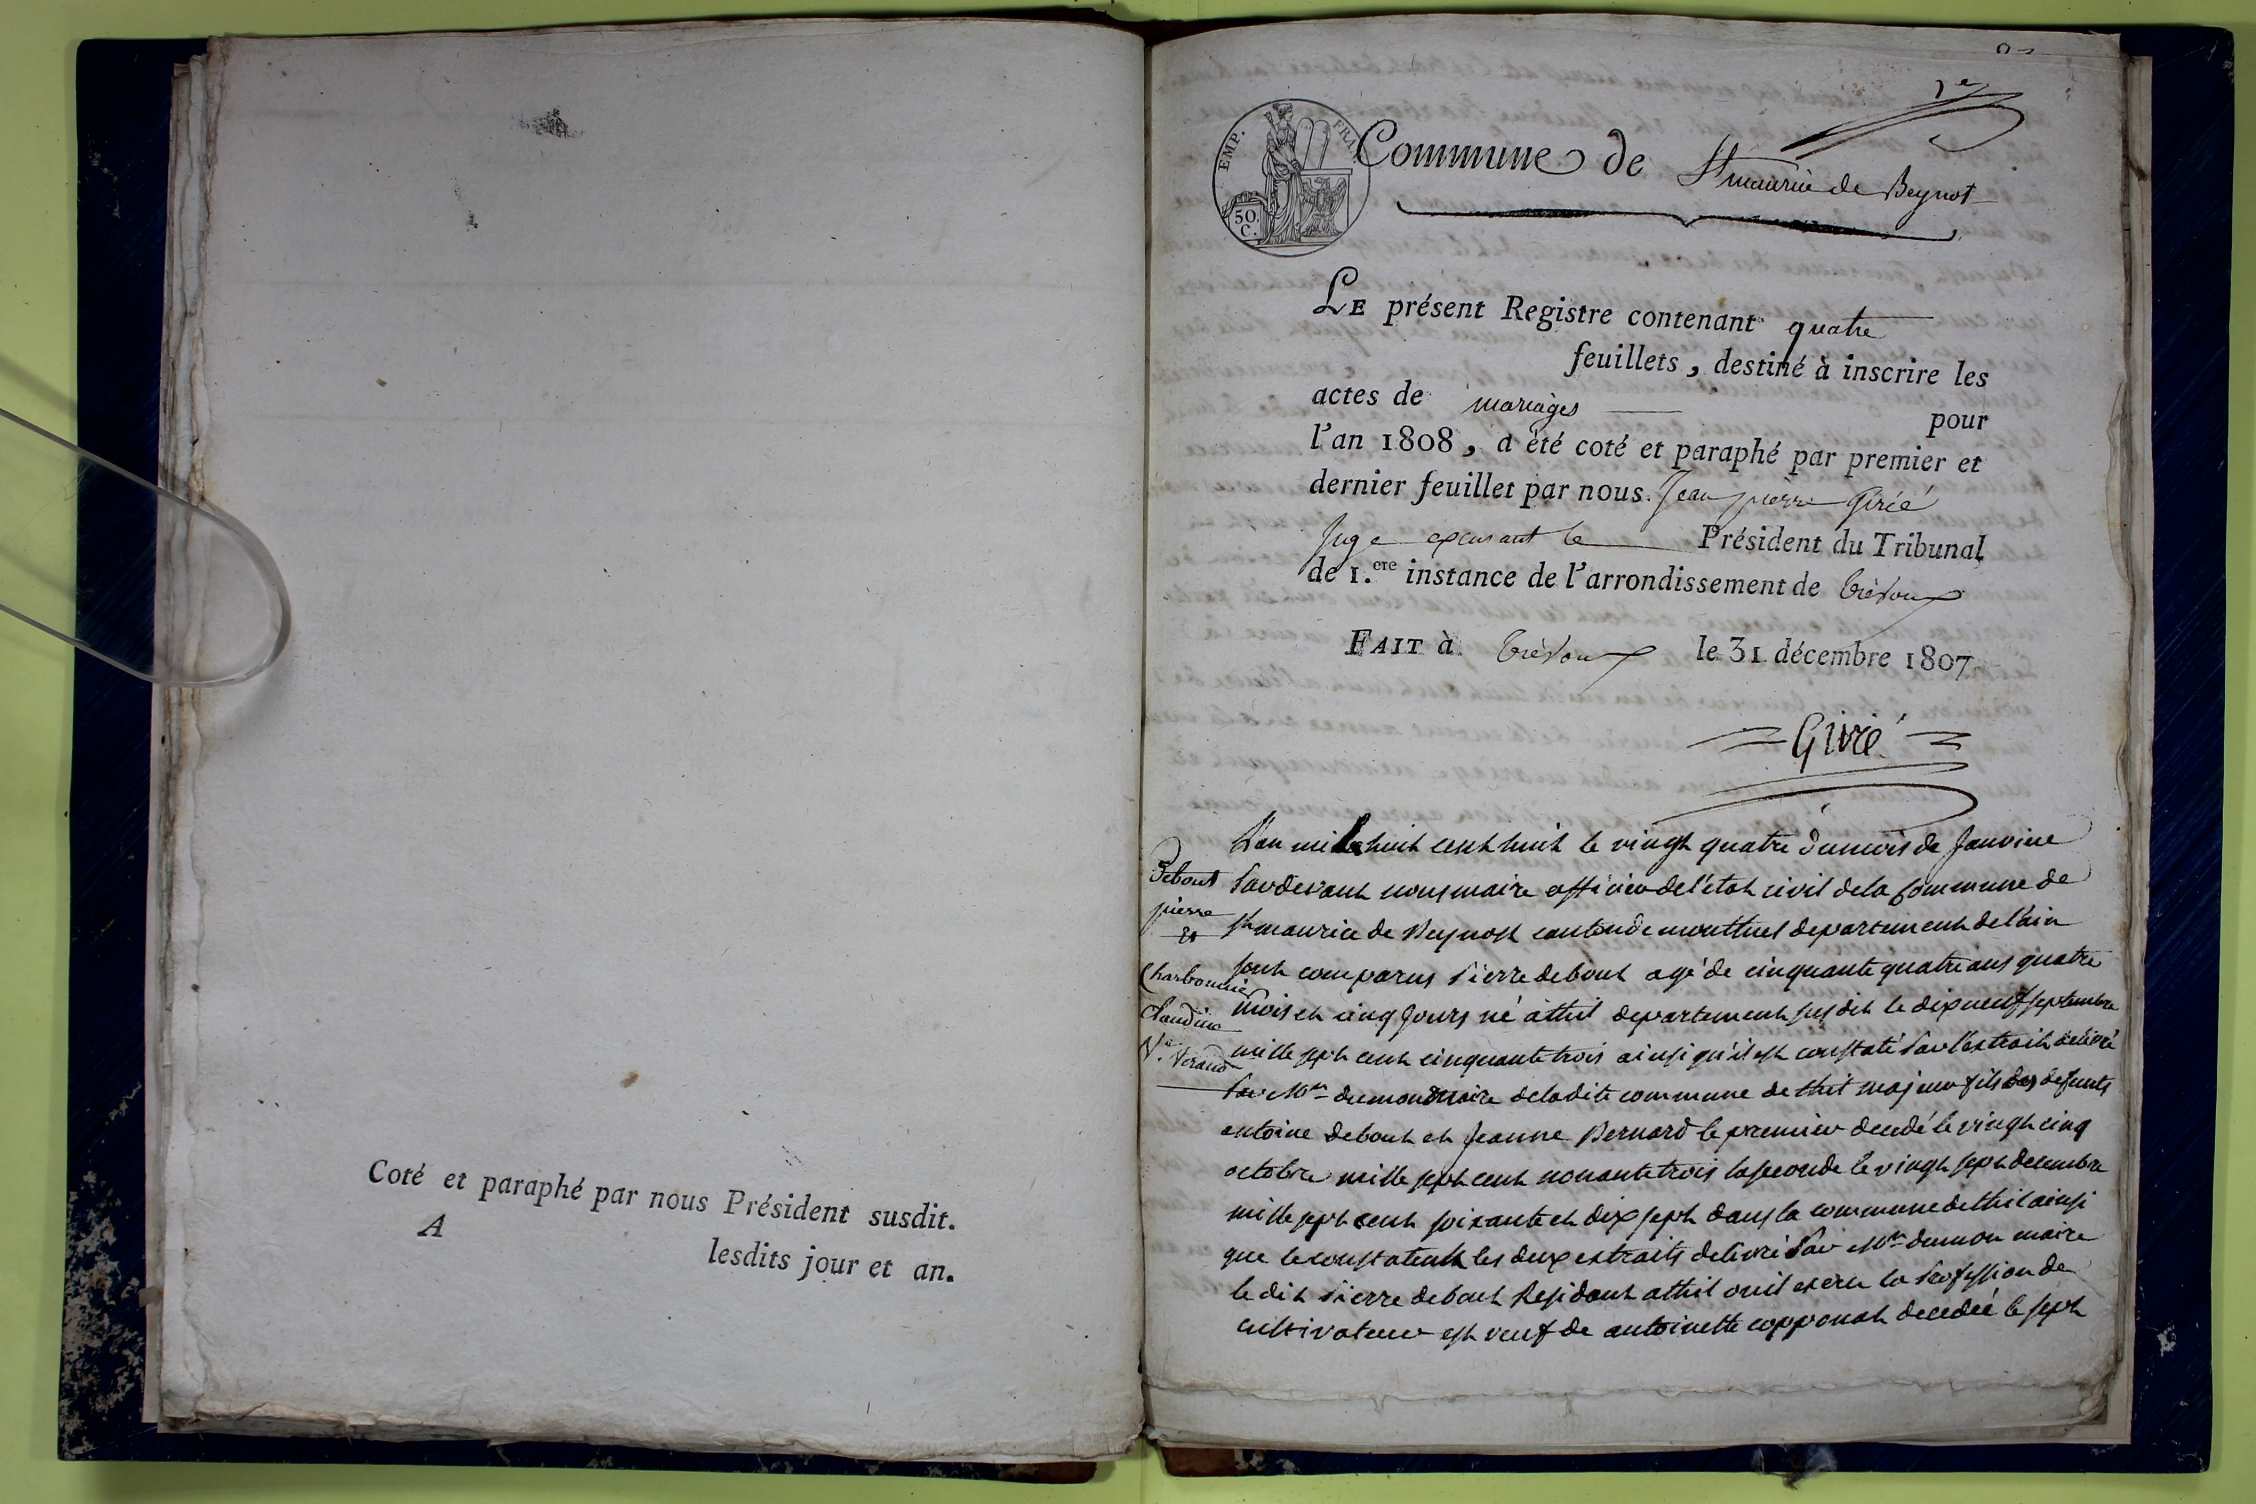 Coté et paraphé par nous Président susdit.
A
lesdits jour et an.
1er
EMP. FRAN
50.
C.
Commune de St maurice de Beynost
LE présent Registre contenant quatre
feuillets, destiné à inscrire les
actes de mariages pour
l'an 1808, a été coté et paraphé par premier et
dernier feuillet par nous Jean pierre Girié
Juge exerçant le Président du Tribunal
de 1.ere instance de l'arrondissement de trévoux
FAIT à trévoux le 31 décembre 1807
Girié
Debout
pierre
et
Charbonnier
Claudine
Ve. Veraud
L'an mille huit cent huit le vingt quatre du mois de Janvier
Pardevant nous maire officier de l'état civil de la Commune de
St maurice de Beynost canton de montluel departement de l'ain
sont comparus Pierre debout agé de cinquante quatre ans quatre
mois et cinq Jours né à thil departement susdit le dix neuf septembre
mille sept cent cinquante trois ainsi qu'il est constaté Par l'extrait delivré
Par Mr dumon maire de ladite commune de thil majeur fils des defunts
antoine debout et Jeanne Bernard le premier decedé le vingt cinq
octobre mille sept cent nonante trois la seconde le vingt sept decembre
mille sept cent soixante et dix sept dans la commune de thil ainsi
que le constatent les deux extraits delivré Par Mr dumon maire
le dit Pierre debout Residant a thil ou il exerce la Profession de
cultivateur est veuf de antoinette copponat decedée le sept